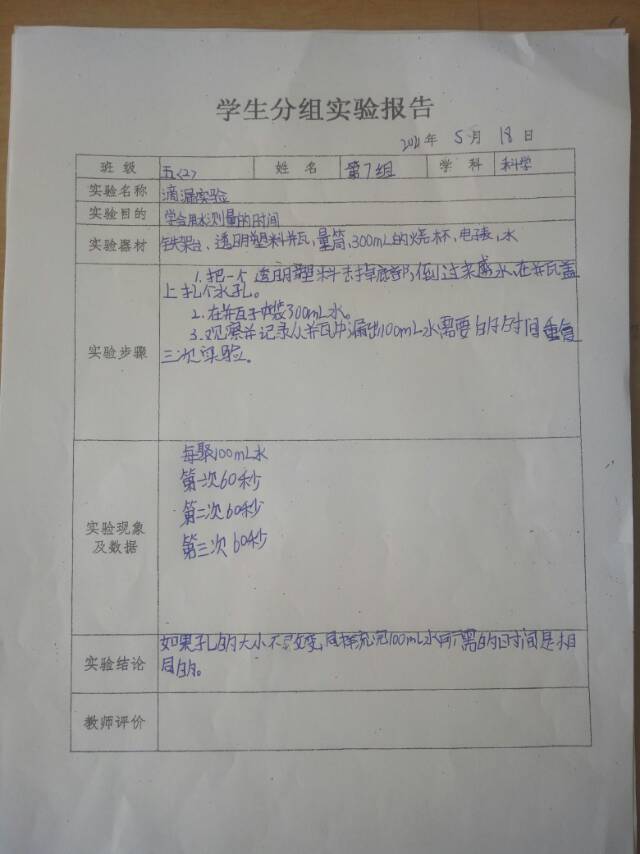 学生分组实验报告
2021年 5月 18日
班级 五(2) 姓名 第7组 学科 科学
实验名称 滴漏实验
实验目的 学会用水测量的时间
实验器材 铁架台、透明塑料瓶、量筒,300mL的烧杯,电子表,水
1.把一个透明塑料去掉底部,倒过来盛水,在瓶盖
上扎个水孔。
2.在瓶子内装300mL水。
实验步骤
3.观察并记录从瓶中漏出100mL水需要的时间重复
三次实验。
每聚100mL水
第一次60秒
第二次60秒
实验现象
及数据
第三次60秒
实验结论 如果孔的大小不改变,同样流完100mL水所需的时间是相
同的。
教师评价